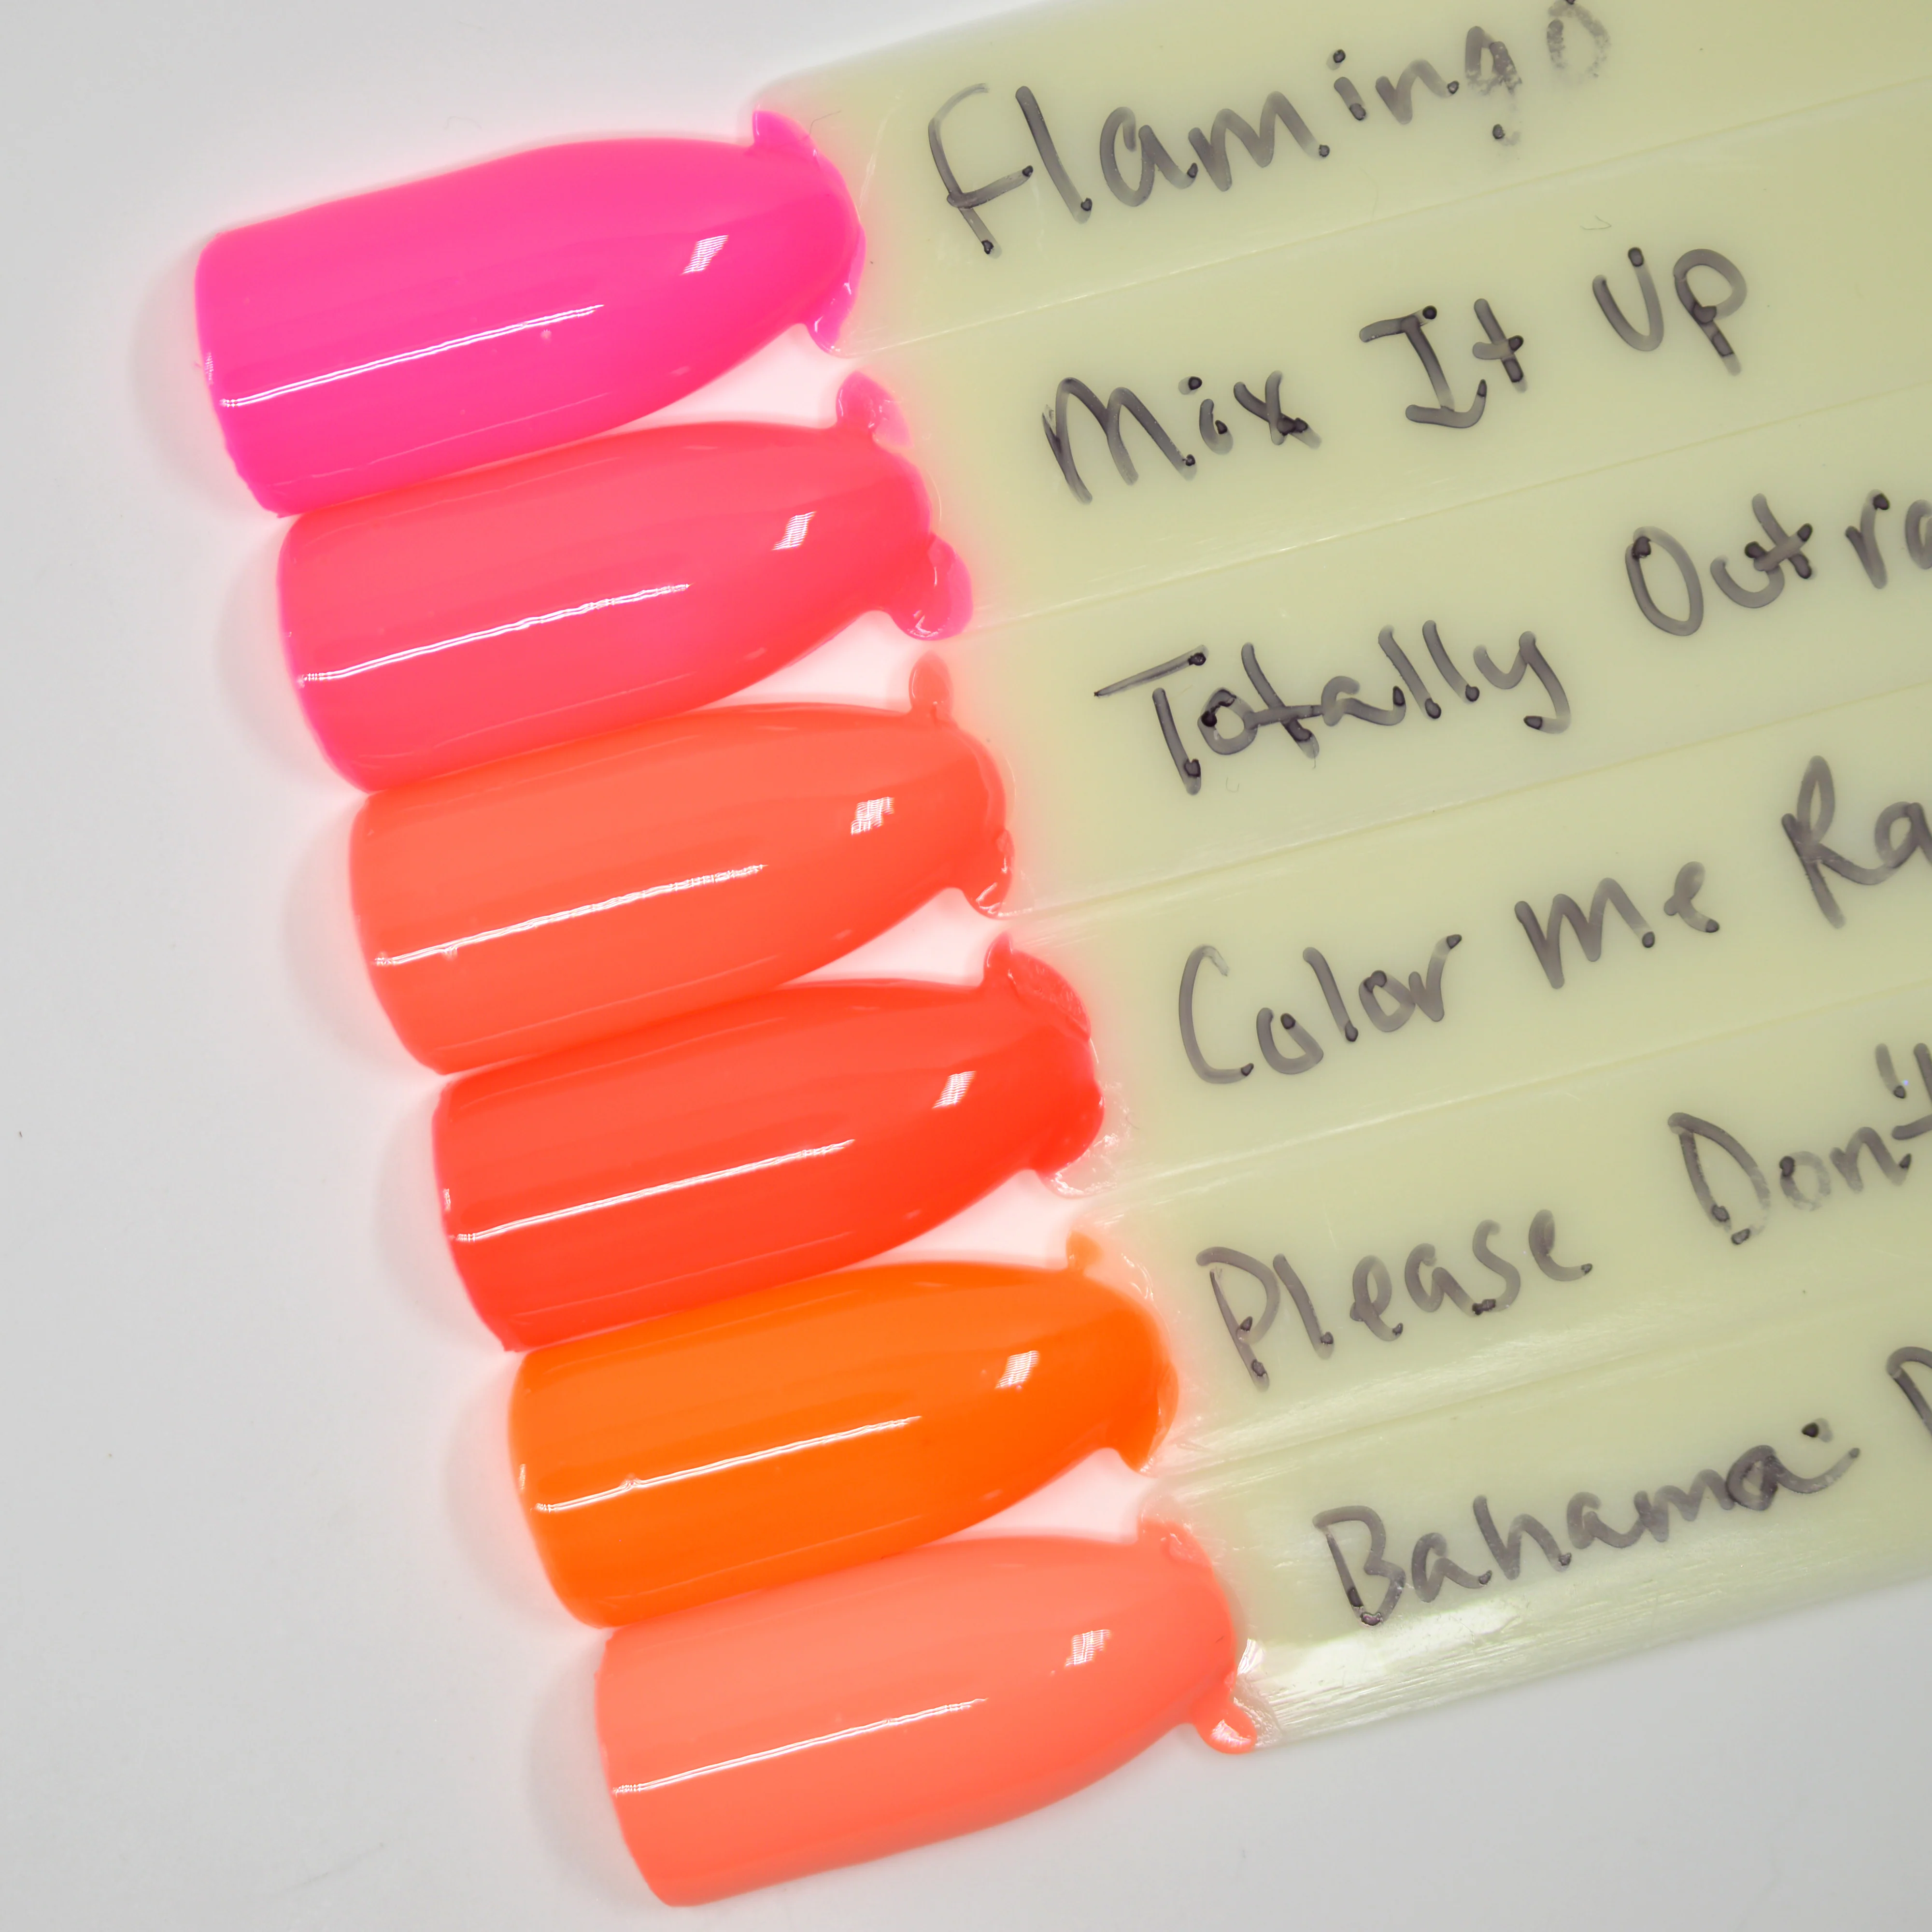 Flamingo
Mix It Up
Totally Outra
Color Me Ra
Please Don't
Bahama